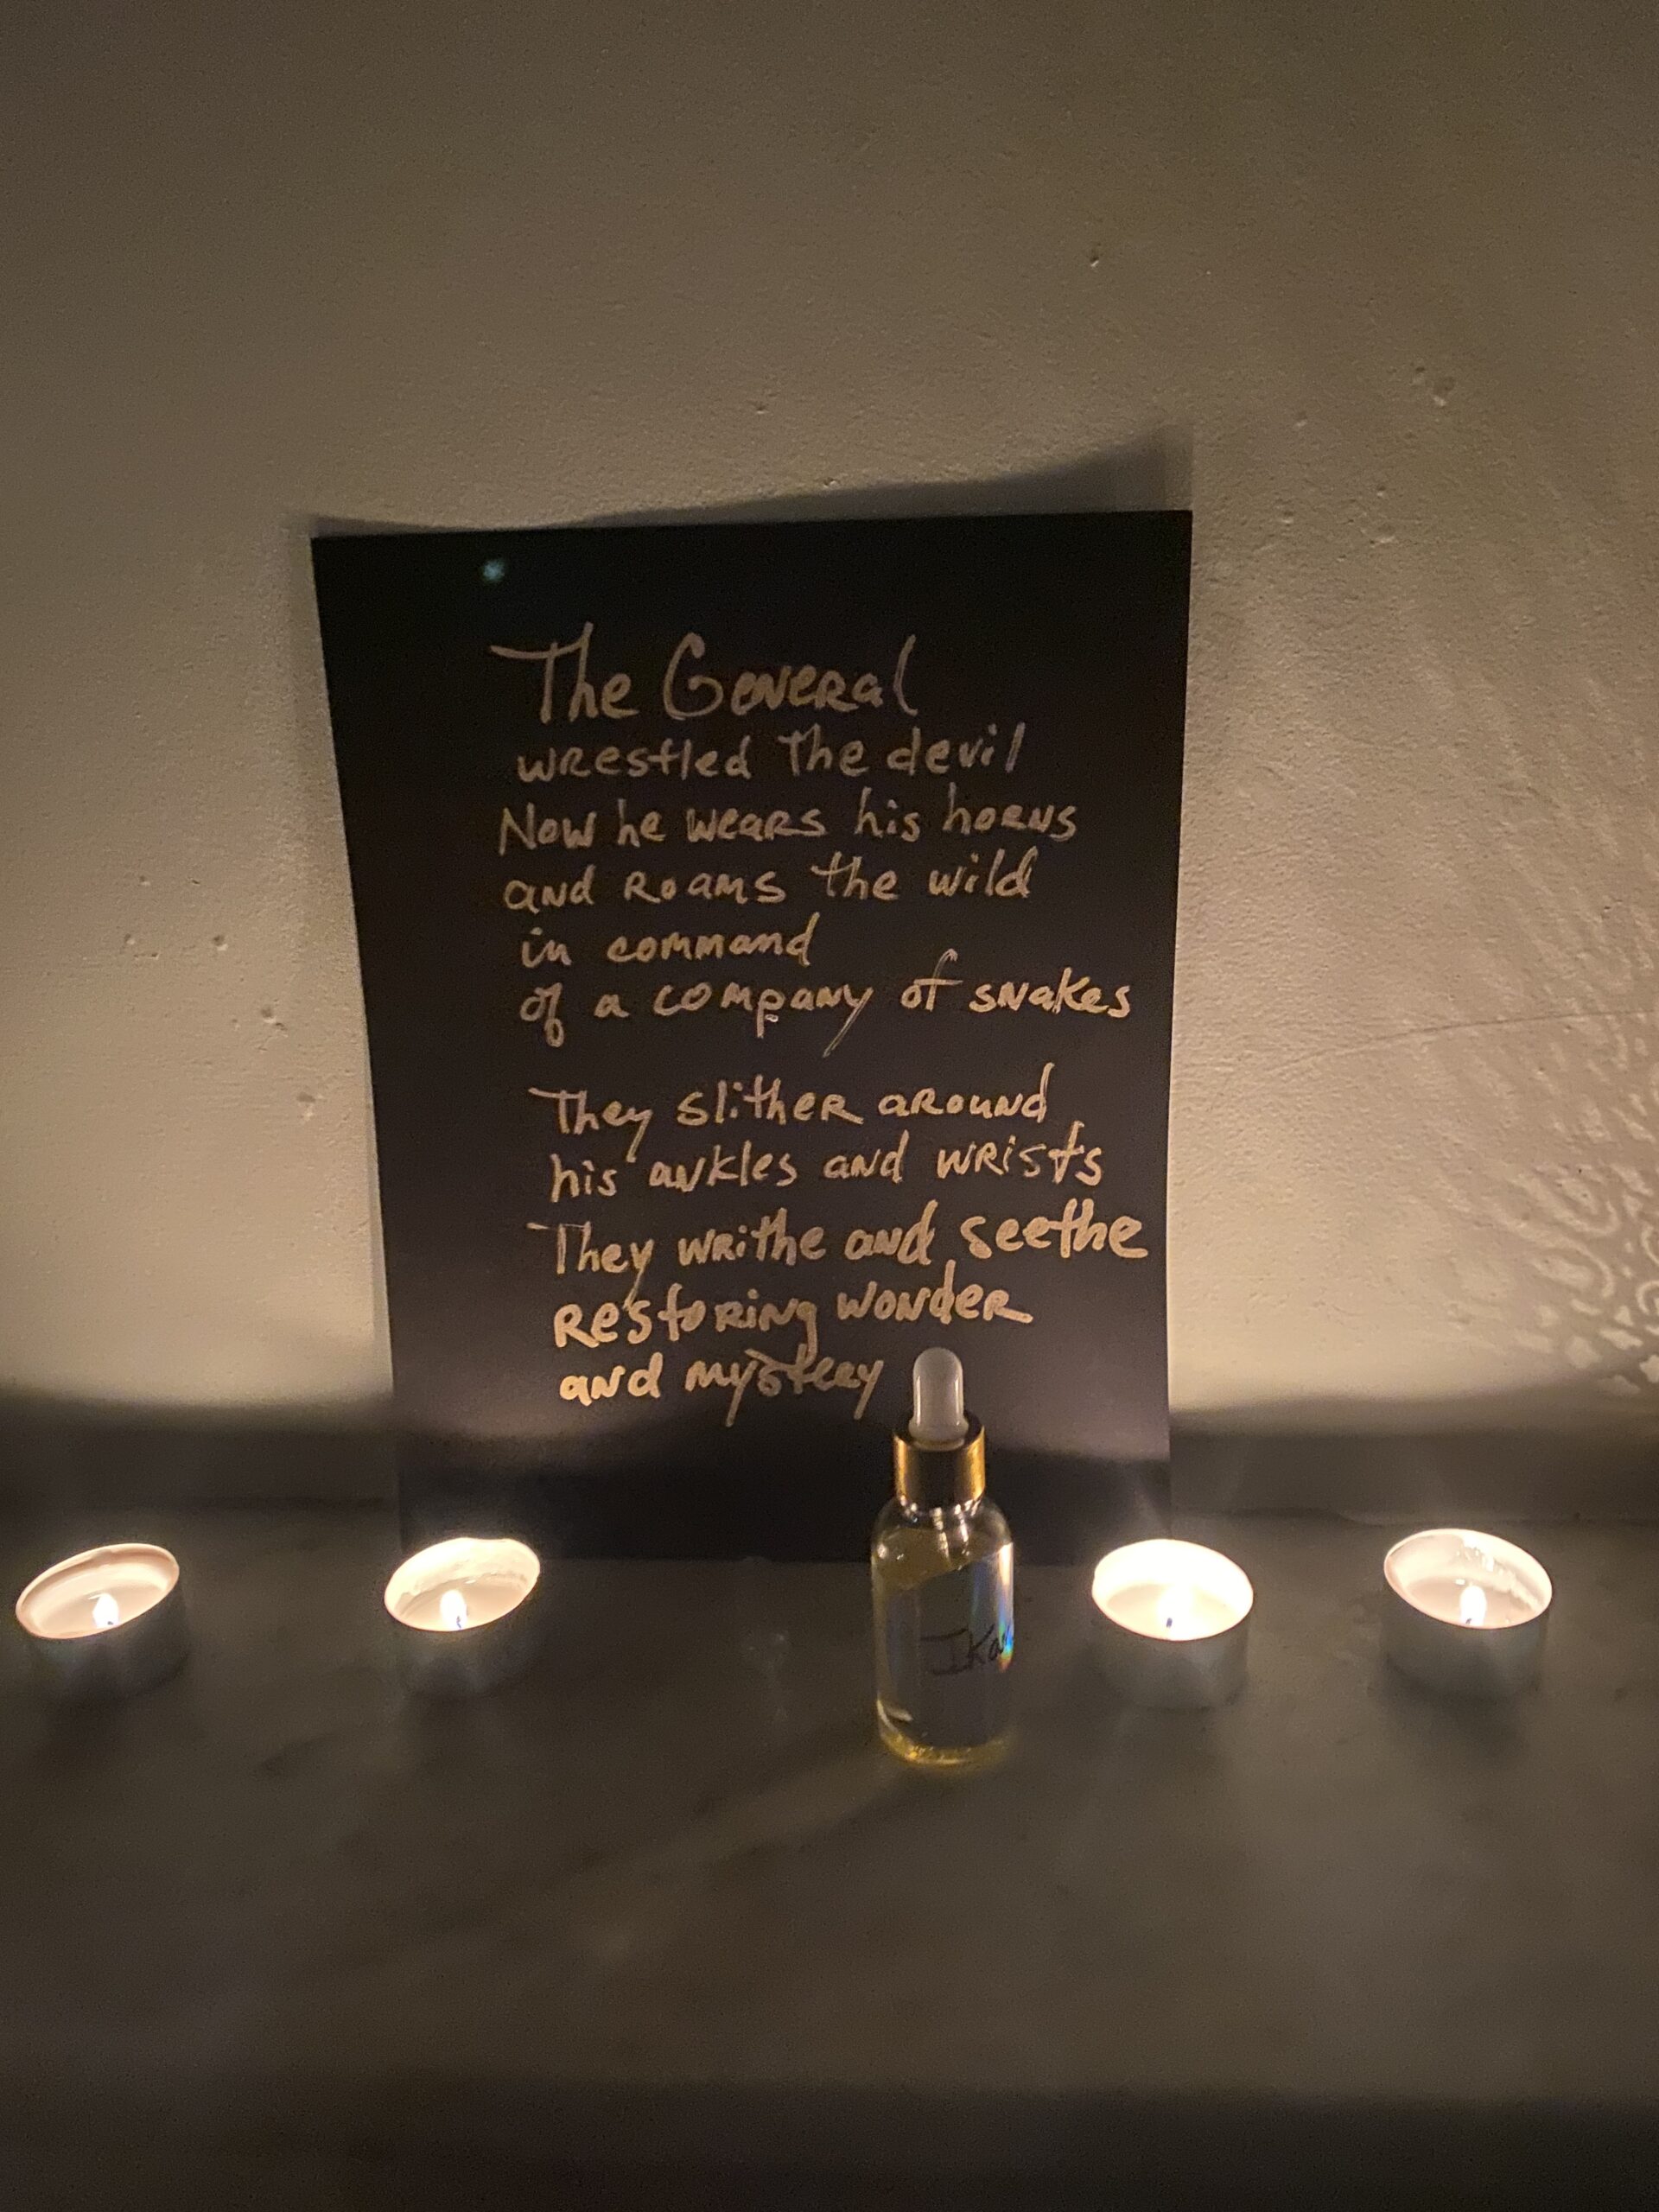 The General
wrestled the devil
Now he wears his horns
and roams the wild
in command
of a company of snakes
They slither around
his ankles and wrists
They writhe and seethe
Restoring wonder
and mystery